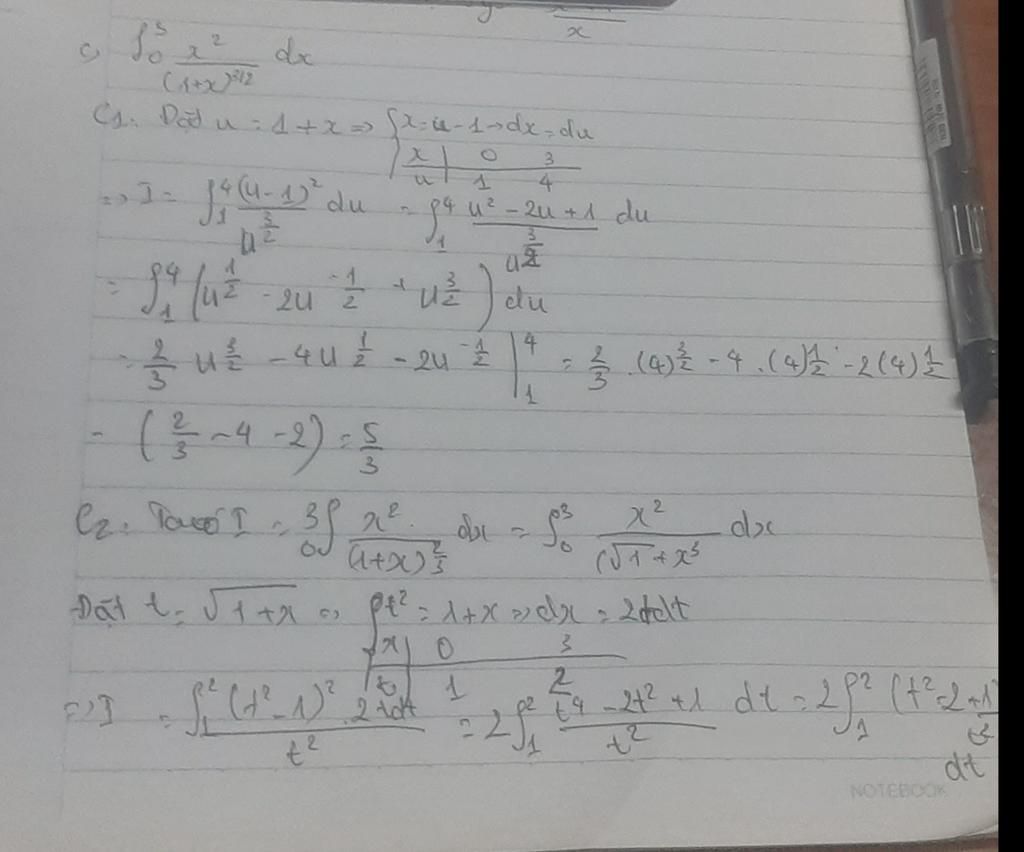 x
c, ∫₀³ x² / (1+x)^3/2 dx
C1. Đặt u = 1 + x => { x = u - 1 → dx = du
x | 0 3
u | 1 4
=> I = ∫₁⁴ (u-1)² / u^3/2 du = ∫₁⁴ u² - 2u + 1 / u^3/2 du
= ∫₁⁴ ( u^1/2 - 2u^-1/2 + u^3/2 ) du
= 2/3 u^3/2 - 4u^1/2 - 2u^-1/2 |₁⁴ = 2/3 . (4)^3/2 - 4 . (4)^1/2 - 2(4)^1/2
- ( 2/3 - 4 - 2 ) = 5/3
C2. Ta có I = ₀³∫ x² / (1+x)^2/3 dx = ∫₀³ x² / (√1 + x³ dx
Đặt t = √1+x => { t² = 1 + x => dx = 2tdt
x | 0 3
t | 1 2
=> I = ∫₁² (t² - 1)² . 2tdt / t² = 2∫₁² t⁴ - 2t² + 1 / t² dt = 2∫₁² (t² - 2 + 1 / t²
dt
NOTEBOOK